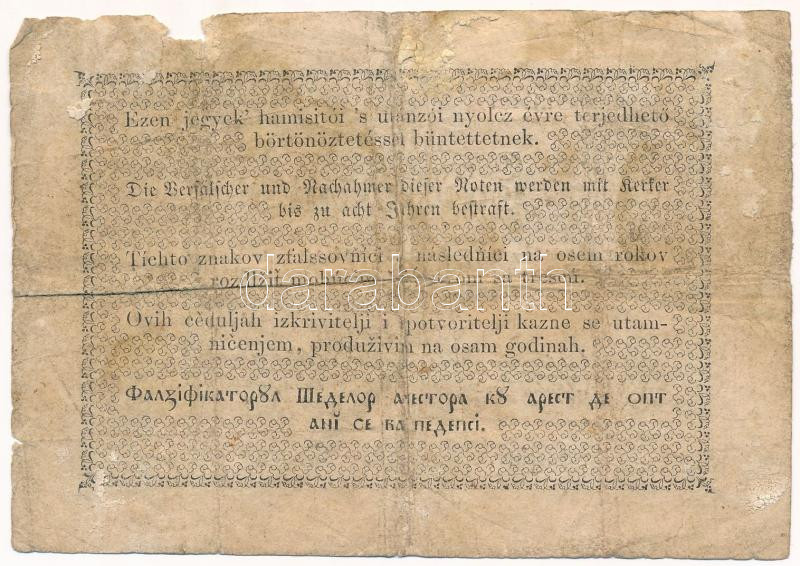 Ezen jegyek' hamisitói 's utánzói nyolcz évre terjedhető
börtönöztetéssel büntettetnek.
Die Verfälscher und Nachahmer dieser Noten werden mit Kerker
bis zu acht Jahren bestraft.
Tichto znakov zfalssovňíci následňíci na osem rokov
darabanth
Ovih cèduljah izkrivitelji i potvoritelji kazne se utam-
ničenjem, produživim na osam godinah.
Фалзіфікаторꙋл Шеделор ачестора кꙋ арест де опт
ані се ва педепсі.